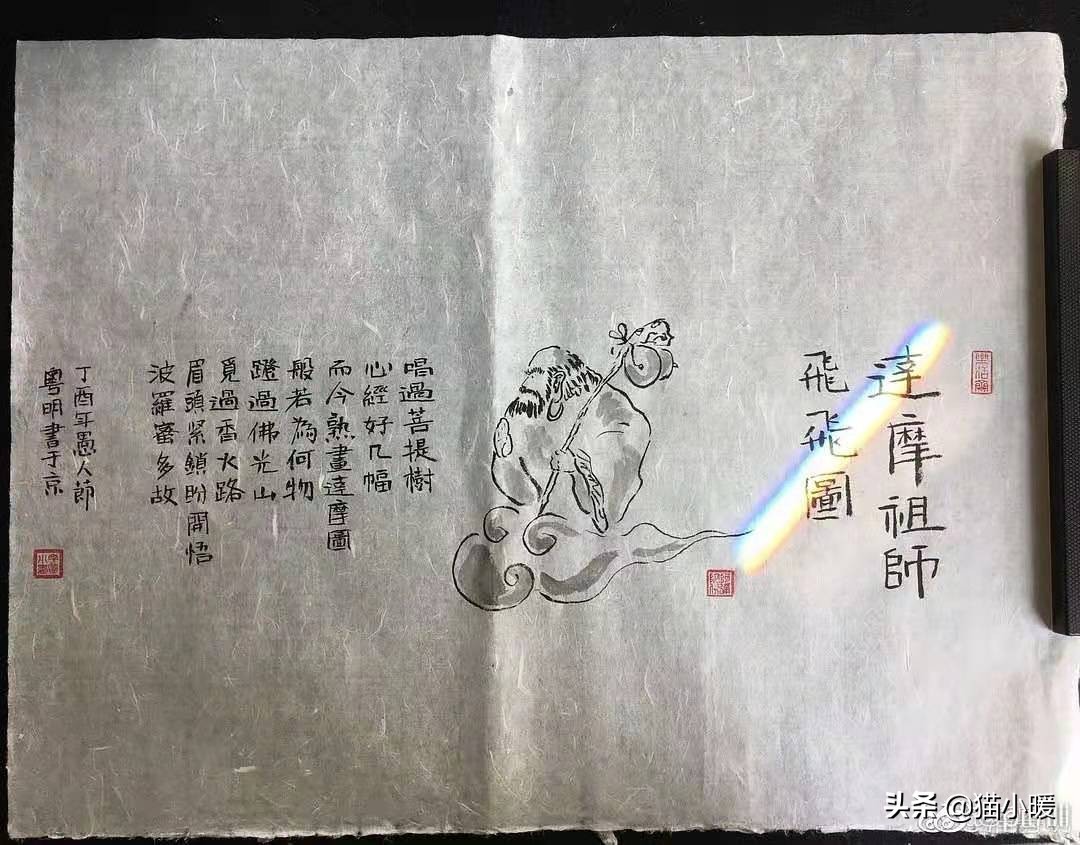 達摩祖師
飛飛圖
唱過菩提樹
心經好几幅
而今熟畫達摩圖
般若為何物
蹬過佛光山
覓過香火路
眉頭緊鎖盼開悟
波羅蜜多故
丁酉年愚人節
粵明書于京
头条 @猫小暖